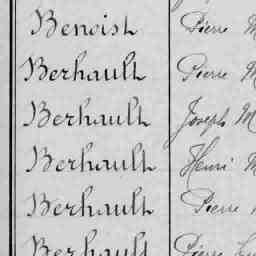 Benoist Pierre M
Berhault Pierre M
Berhault Joseph M
Berhault Henri M
Berhault Pierre
Berhault Pierre